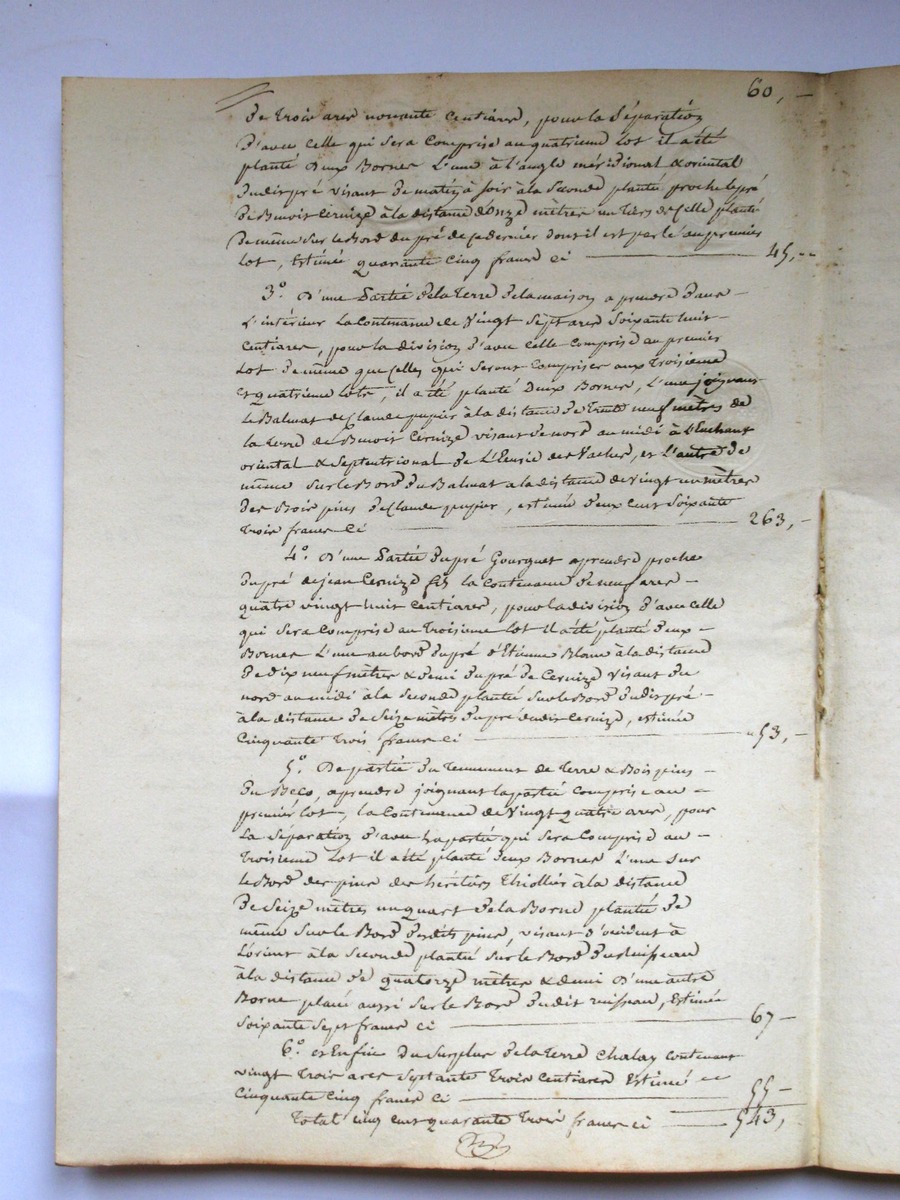 60,-
De Trois ares nonante centiares, pour la Séparation
D'avec celle qui sera comprise au quatrieme Lot il a été
planté Deux Bornes L'une à l'angle méridional & oriental
Dudit pré visant De matin à soir à la Seconde plantée proche le pré
De Benoit Cernize à la distance d'onze mètres un tiers de celle planté
De même sur le Bord du pré de ce dernier dont il est parlé au premier
Lot, Estimée quarante cinq francs ci — 45,-
3° D'une Partie de la Terre de la maison a prendre dans
L'intérieur La Contenance de Vingt Sept ares Soixante huit
Centiares, pour la division d'avec celle comprise au premier
Lot De même que celles qui seront Comprises aux Troisieme
et quatrieme Lots, il a été planté Deux Bornes, L'une joignant
le Balmat de Claude pupier à la distance de Trente neuf mètres de
la terre de Benoit Cernize visant de nord au midi à
oriental & Septentrional de des Vaches, et L'autre de
même sur le Bord du Balmat a la distance de Vingt un mètres
des Bois pins de Claude pupier, estimée deux cent Soixante
trois francs ci — 263,-
4° D'une Partie du pré Gourguet a prendre proche
du pré de jean Cernize fils la contenance de neuf ares
quatre vingt huit Centiares, pour la division d'avec celle
qui sera comprise au Troisieme Lot il a été planté deux
Bornes L'une au bord du pré d'Etienne Blanc à la distance
de dix neuf mètres & demi du pré de Cernize visant du
nord au midi à la Seconde plantée sur le Bord dudit pré
à la distance de Seize mètres du pré dudit Cernize, estimée
Cinquante Trois francs ci — 53,-
5° De partie du Tennement de Terre & Bois pins
du Beco, a prendre joignant la partie comprise au
premier Lot, la Contenance de Vingt quatre ares, pour
La Séparation d'avec la partie qui sera Comprise au
Troisieme Lot il a été planté deux Bornes L'une sur
le Bord des pins des héritiers Thiollier à la distance
De Seize mètres un quart de la Borne plantée de
même sur le Bord desdits pins, visant d'occident à
L'orient à la Seconde plantée sur le Bord du ruisseau
à la distance de quatorze mètres & demi D'une autre
Borne placée aussi sur le Bord dudit ruisseau, Estimée
Soixante Sept francs ci — 67-
6° et Enfin Du Surplus de la Terre Chalay contenant
vingt Trois ares Septante Trois Centiares Estimée
Cinquante Cinq francs ci — 55-
Total cinq cent quarante Trois francs ci — 543,